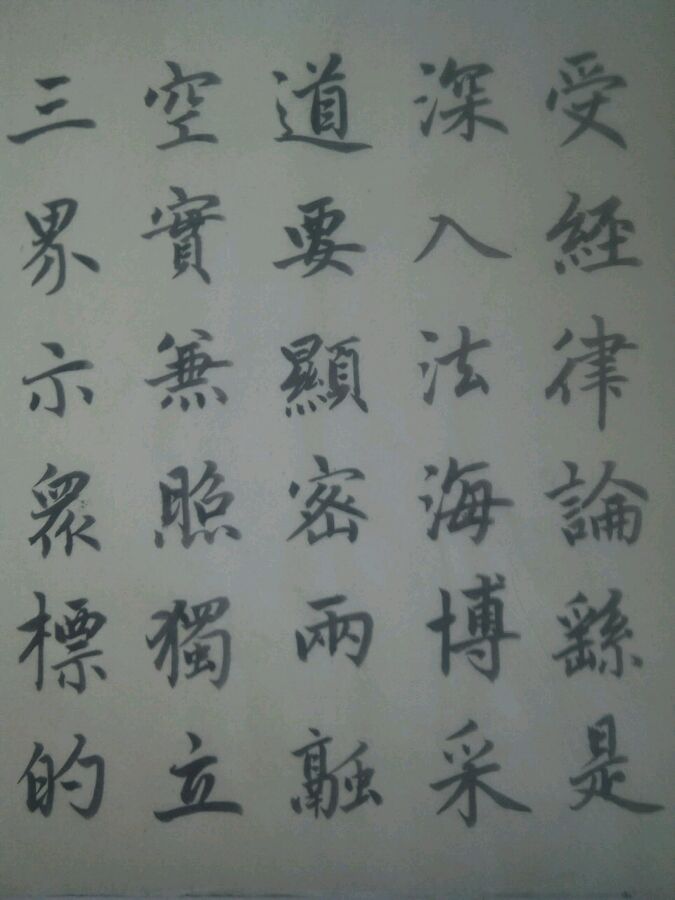 受經律論繇是
深入法海博采
道要顯密兩融
空實兼照獨立
三界示眾標的